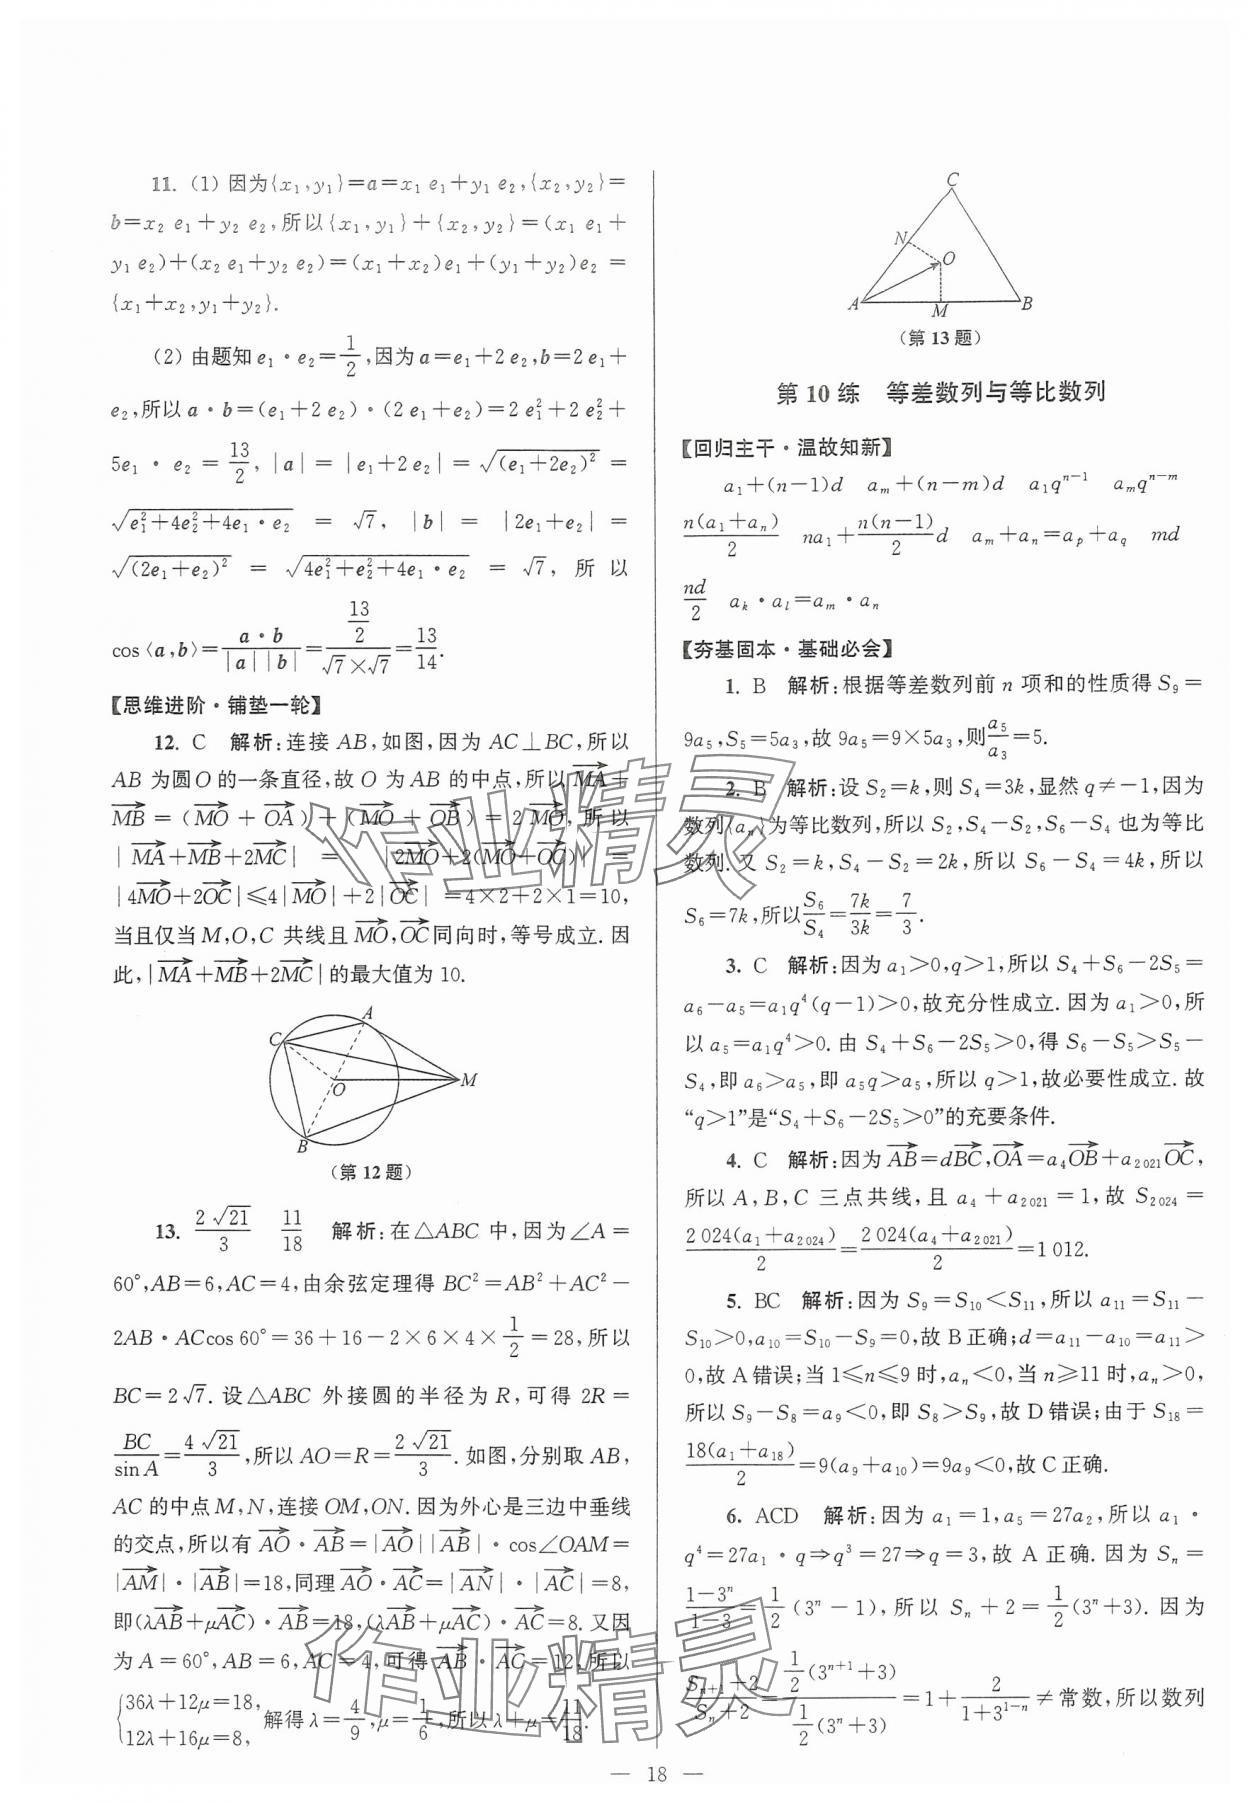 11. (1) 因为{x₁,y₁}=a=x₁ e₁+y₁ e₂,{x₂,y₂}=
b=x₂ e₁+y₂ e₂,所以{x₁,y₁}+{x₂,y₂}=(x₁ e₁+
y₁ e₂)+(x₂ e₁+y₂ e₂)=(x₁+x₂)e₁+(y₁+y₂)e₂=
{x₁+x₂,y₁+y₂}.
(2) 由题知 e₁·e₂=1/2,因为 a=e₁+2 e₂,b=2 e₁+
e₂,所以 a·b=(e₁+2 e₂)·(2 e₁+e₂)=2 e₁²+2 e₂²+
5e₁·e₂=13/2,|a|=|e₁+2 e₂|=√((e₁+2e₂)²)=
√(e₁²+4e₂²+4e₁·e₂)=√7,|b|=|2e₁+e₂|=
√((2e₁+e₂)²)=√(4e₁²+e₂²+4e₁·e₂)=√7,所以
cos〈a,b〉=(a·b)/(|a||b|)=(13/2)/(√7×√7)=13/14.
【思维进阶·铺垫一轮】
12. C 解析:连接 AB,如图,因为 AC⊥BC,所以
AB 为圆O 的一条直径,故 O 为 AB 的中点,所以 MA→+
MB→=(MO→+OA→)+(MO→+OB→)=2 MO→,所以
|MA→+MB→+2MC→|=|2MO→+2(MO→+OC→)|=
|4MO→+2OC→|≤4|MO→|+2|OC→|=4×2+2×1=10,
当且仅当 M,O,C 共线且 MO→,OC→同向时,等号成立. 因
此,|MA→+MB→+2MC→|的最大值为 10.
A
C
O
M
B
(第 12 题)
13. 2√21/3 11/18 解析:在△ABC 中,因为∠A=
60°,AB=6,AC=4,由余弦定理得 BC²=AB²+AC²-
2AB·ACcos 60°=36+16-2×6×4×1/2=28,所以
BC=2√7. 设△ABC 外接圆的半径为 R,可得 2R=
BC/sin A=4√21/3,所以 AO=R=2√21/3. 如图,分别取 AB,
AC 的中点 M,N,连接 OM,ON. 因为外心是三边中垂线
的交点,所以有 AO→·AB→=|AO→||AB→|·cos∠OAM=
|AM→|·|AB→|=18,同理 AO→·AC→=|AN→|·|AC→|=8,
即(λAB→+μAC→)·AB→=18,(λAB→+μAC→)·AC→=8. 又因
为 A=60°,AB=6,AC=4,可得 AB→·AC→=12,所以
{36λ+12μ=18,
12λ+16μ=8, 解得 λ=4/9,μ=1/6,所以 λ+μ=11/18.
C
N
O
A
M
B
(第 13 题)
第 10 练 等差数列与等比数列
【回归主干·温故知新】
a₁+(n-1)d aₘ+(n-m)d a₁qⁿ⁻¹ aₘqⁿ⁻ᵐ
n(a₁+aₙ)/2 na₁+n(n-1)/2 d aₘ+aₙ=aₚ+a_q md
nd/2 aₖ·aₗ=aₘ·aₙ
【夯基固本·基础必会】
1. B 解析:根据等差数列前 n 项和的性质得 S₉=
9a₅,S₅=5a₃,故 9a₅=9×5a₃,则a₅/a₃=5.
2. B 解析:设 S₂=k,则 S₄=3k,显然 q≠-1,因为
数列{aₙ}为等比数列,所以 S₂,S₄-S₂,S₆-S₄ 也为等比
数列. 又 S₂=k,S₄-S₂=2k,所以 S₆-S₄=4k,所以
S₆=7k,所以S₆/S₄=7k/3k=7/3.
3. C 解析:因为 a₁>0,q>1,所以 S₄+S₆-2S₅=
a₆-a₅=a₁q⁴(q-1)>0,故充分性成立. 因为 a₁>0,所
以 a₅=a₁q⁴>0. 由 S₄+S₆-2S₅>0,得 S₆-S₅>S₅-
S₄,即 a₆>a₅,即 a₅q>a₅,所以 q>1,故必要性成立. 故
“q>1”是“S₄+S₆-2S₅>0”的充要条件.
4. C 解析:因为 AB→=dBC→,OA→=a₄OB→+a₂₀₂₁OC→,
所以 A,B,C 三点共线,且 a₄+a₂₀₂₁=1,故 S₂₀₂₄=
2 024(a₁+a₂₀₂₄)/2=2 024(a₄+a₂₀₂₁)/2=1 012.
5. BC 解析:因为 S₉=S₁₀<S₁₁,所以 a₁₁=S₁₁-
S₁₀>0,a₁₀=S₁₀-S₉=0,故 B 正确;d=a₁₁-a₁₀=a₁₁>
0,故 A 错误;当 1≤n≤9 时,aₙ<0,当 n≥11 时,aₙ>0,
所以 S₉-S₈=a₉<0,即 S₈>S₉,故 D 错误;由于 S₁₈=
18(a₁+a₁₈)/2=9(a₉+a₁₀)=9a₉<0,故 C 正确.
6. ACD 解析:因为 a₁=1,a₅=27a₂,所以 a₁·
q⁴=27a₁·q⇒q³=27⇒q=3,故 A 正确. 因为 Sₙ=
(1-3ⁿ)/(1-3)=1/2(3ⁿ-1),所以 Sₙ+2=1/2(3ⁿ+3). 因为
(Sₙ₊₁+2)/(Sₙ+2)=(1/2(3ⁿ⁺¹+3))/(1/2(3ⁿ+3))=1+2/(1+3¹⁻ⁿ)≠常数,所以数列
— 18 —
作业精灵
作业精灵